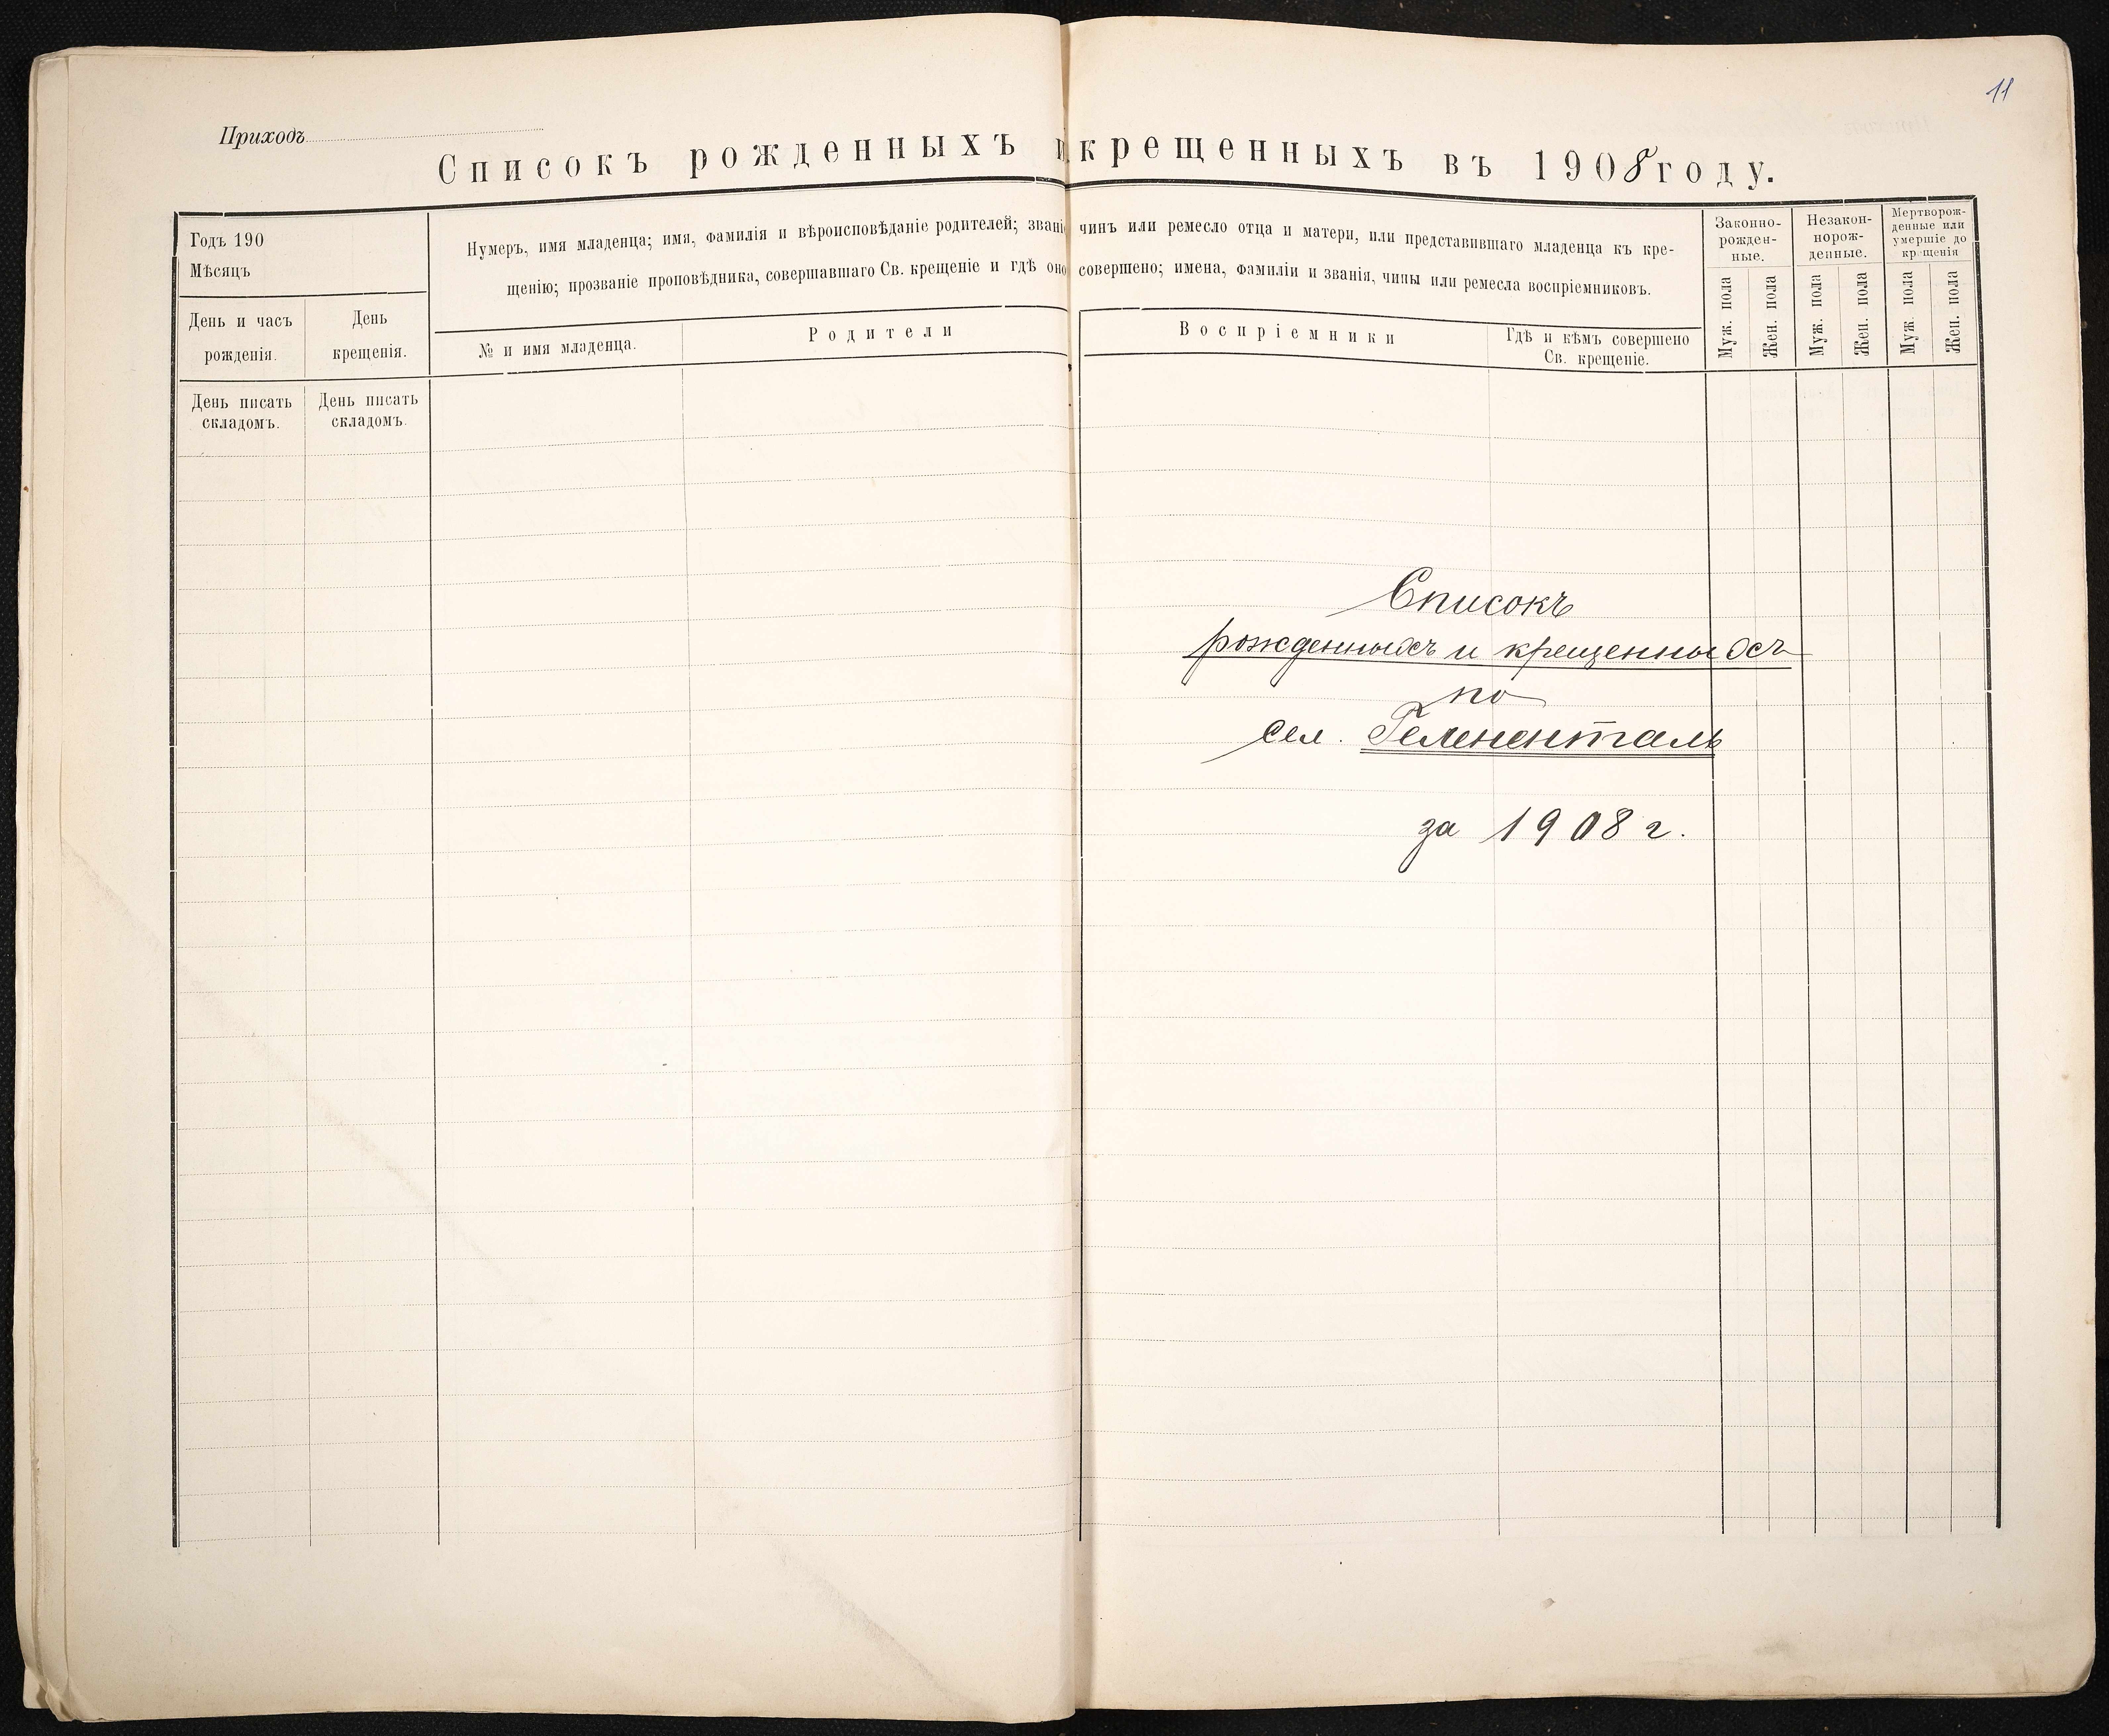 11
Приходъ
Списокъ рожденныхъ и крещенныхъ въ 1908 году.
Годъ 190
Мѣсяцъ
Нумеръ, имя младенца; имя, фамилія и вѣроисповѣданіе родителей; званіе чинъ или ремесло отца и матери, или представившаго младенца къ кре-
щенію; прозваніе проповѣдника, совершавшаго Св. крещеніе и гдѣ оно совершено; имена, фамиліи и званія, чины или ремесла воспріемниковъ.
Законно-
рожден-
ные.
Незакон-
норож-
денные.
Мертворож-
денные или
умершіе до
крещенія
День и часъ
рожденія.
День
крещенія.
№ и имя младенца.
Родители
Воспріемники
Гдѣ и кѣмъ совершено
Св. крещеніе.
Муж. пола
Жен. пола
Муж. пола
Жен. пола
Муж. пола
Жен. пола
День писать
складомъ.
День писать
складомъ.
Списокъ
рожденныхъ и крещенныхъ
по
сел. Гелененталь
за 1908 г.